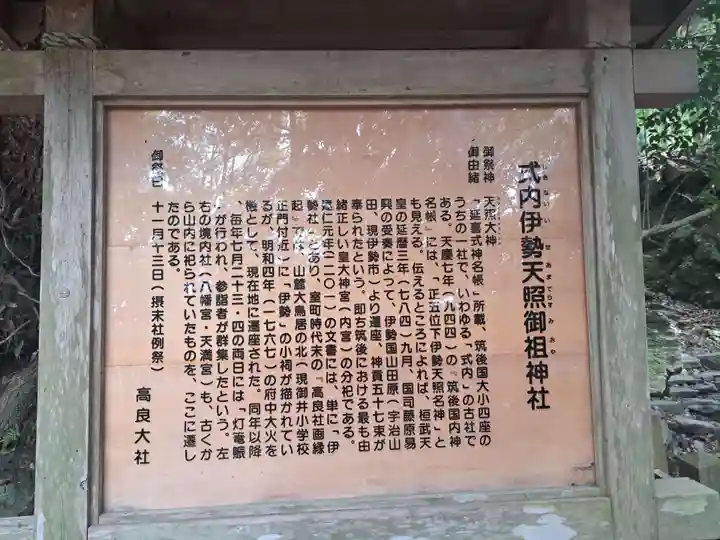 式内伊勢天照御祖神社
しきないいせあまてらすみおや
御祭神　天照大神
御由緒　『延喜式神名帳』所載、筑後国大小四座の
うちの一社で、いわゆる「式内」の古社で
ある。天慶七年（九四四）の『筑後国内神
名帳』には、「正五位下伊勢天照名神」と
も見える。伝えるところによれば、桓武天
皇の延暦三年（七八四）九月、国司藤原易
興の受奏によって、伊勢国山田原（宇治山
田、現伊勢市）より遷座、神賁五十七束が
奉られたという。即ち筑後における最も由
緒正しい皇大神宮（内宮）の分祀である。
建仁元年（一二〇一）の文書には、単に「伊
勢社」とあり、室町時代末の『高良社画縁
起』では、山麓大鳥居の北（現御井小学校
正門付近）に「伊勢」の小祠が描かれてい
るが、明和四年（一七六七）の府中大火を
機として、現在地に遷座された。同年以降
、毎年七月二十三・四の両日には「灯竜賑
」が行われ、参詣者が群集したという。左
右の境内社（八幡宮・天満宮）も、古くか
ら山内に祀られていたものを、ここに遷し
たのである。
御祭日　十一月十三日（摂末社例祭）
高良大社